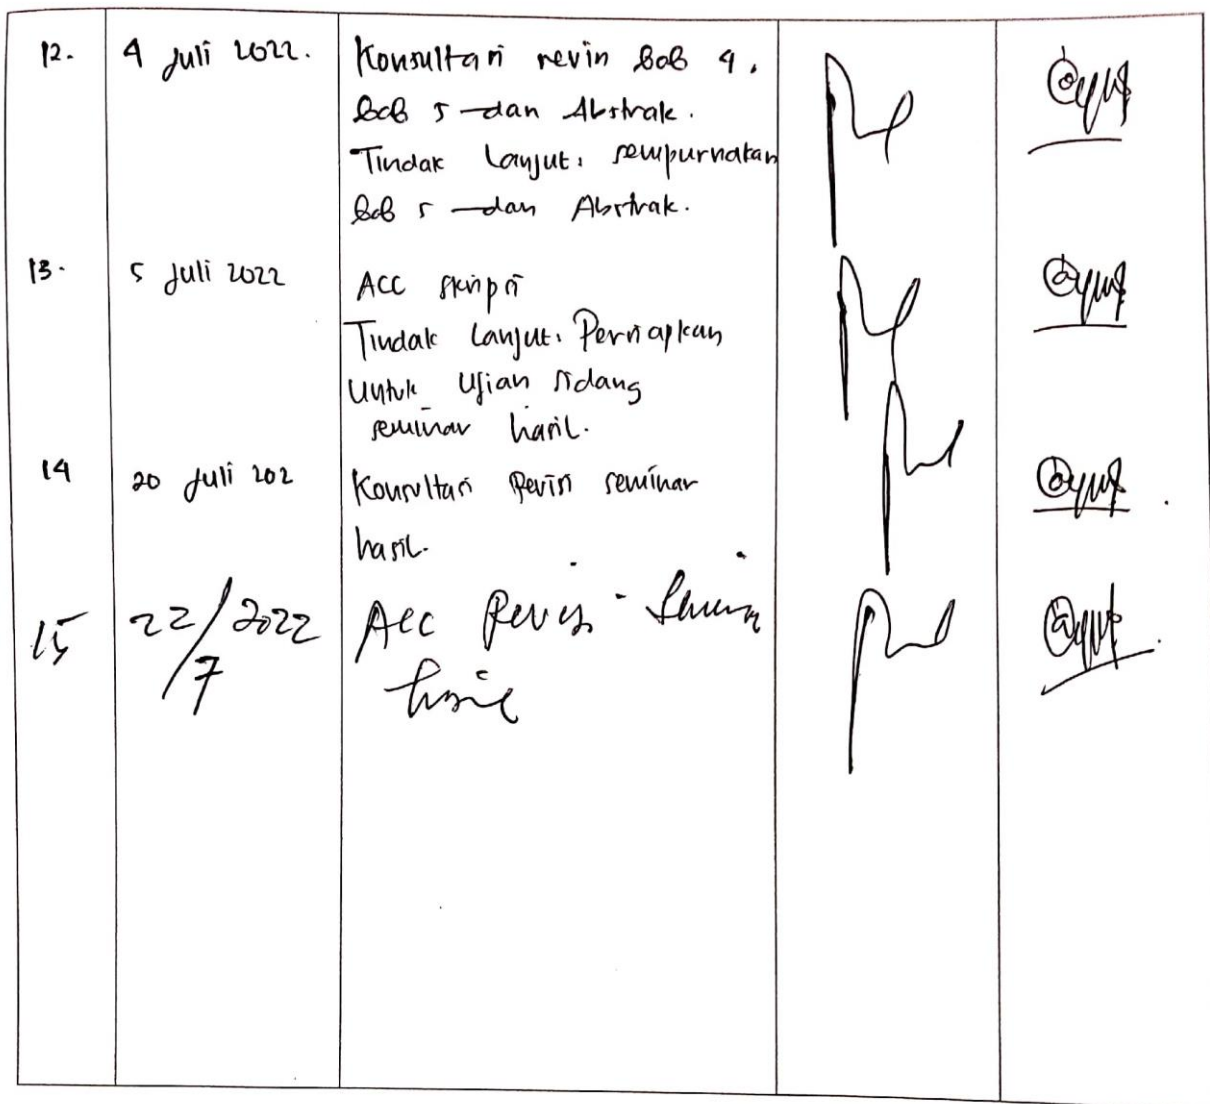 12. 4 Juli 2022. Konsultasi revisi Bab 4,
Bab 5 dan Abstrak.
Tindak Lanjut: sempurnakan
Bab 5 dan Abstrak.
13. 5 Juli 2022 ACC skripsi
Tindak Lanjut: Persiapkan
Untuk Ujian sidang
seminar hasil.
14 20 Juli 202 Konsultasi Revisi seminar
hasil.
15 22/7 2022 Acc Revisi
hasil